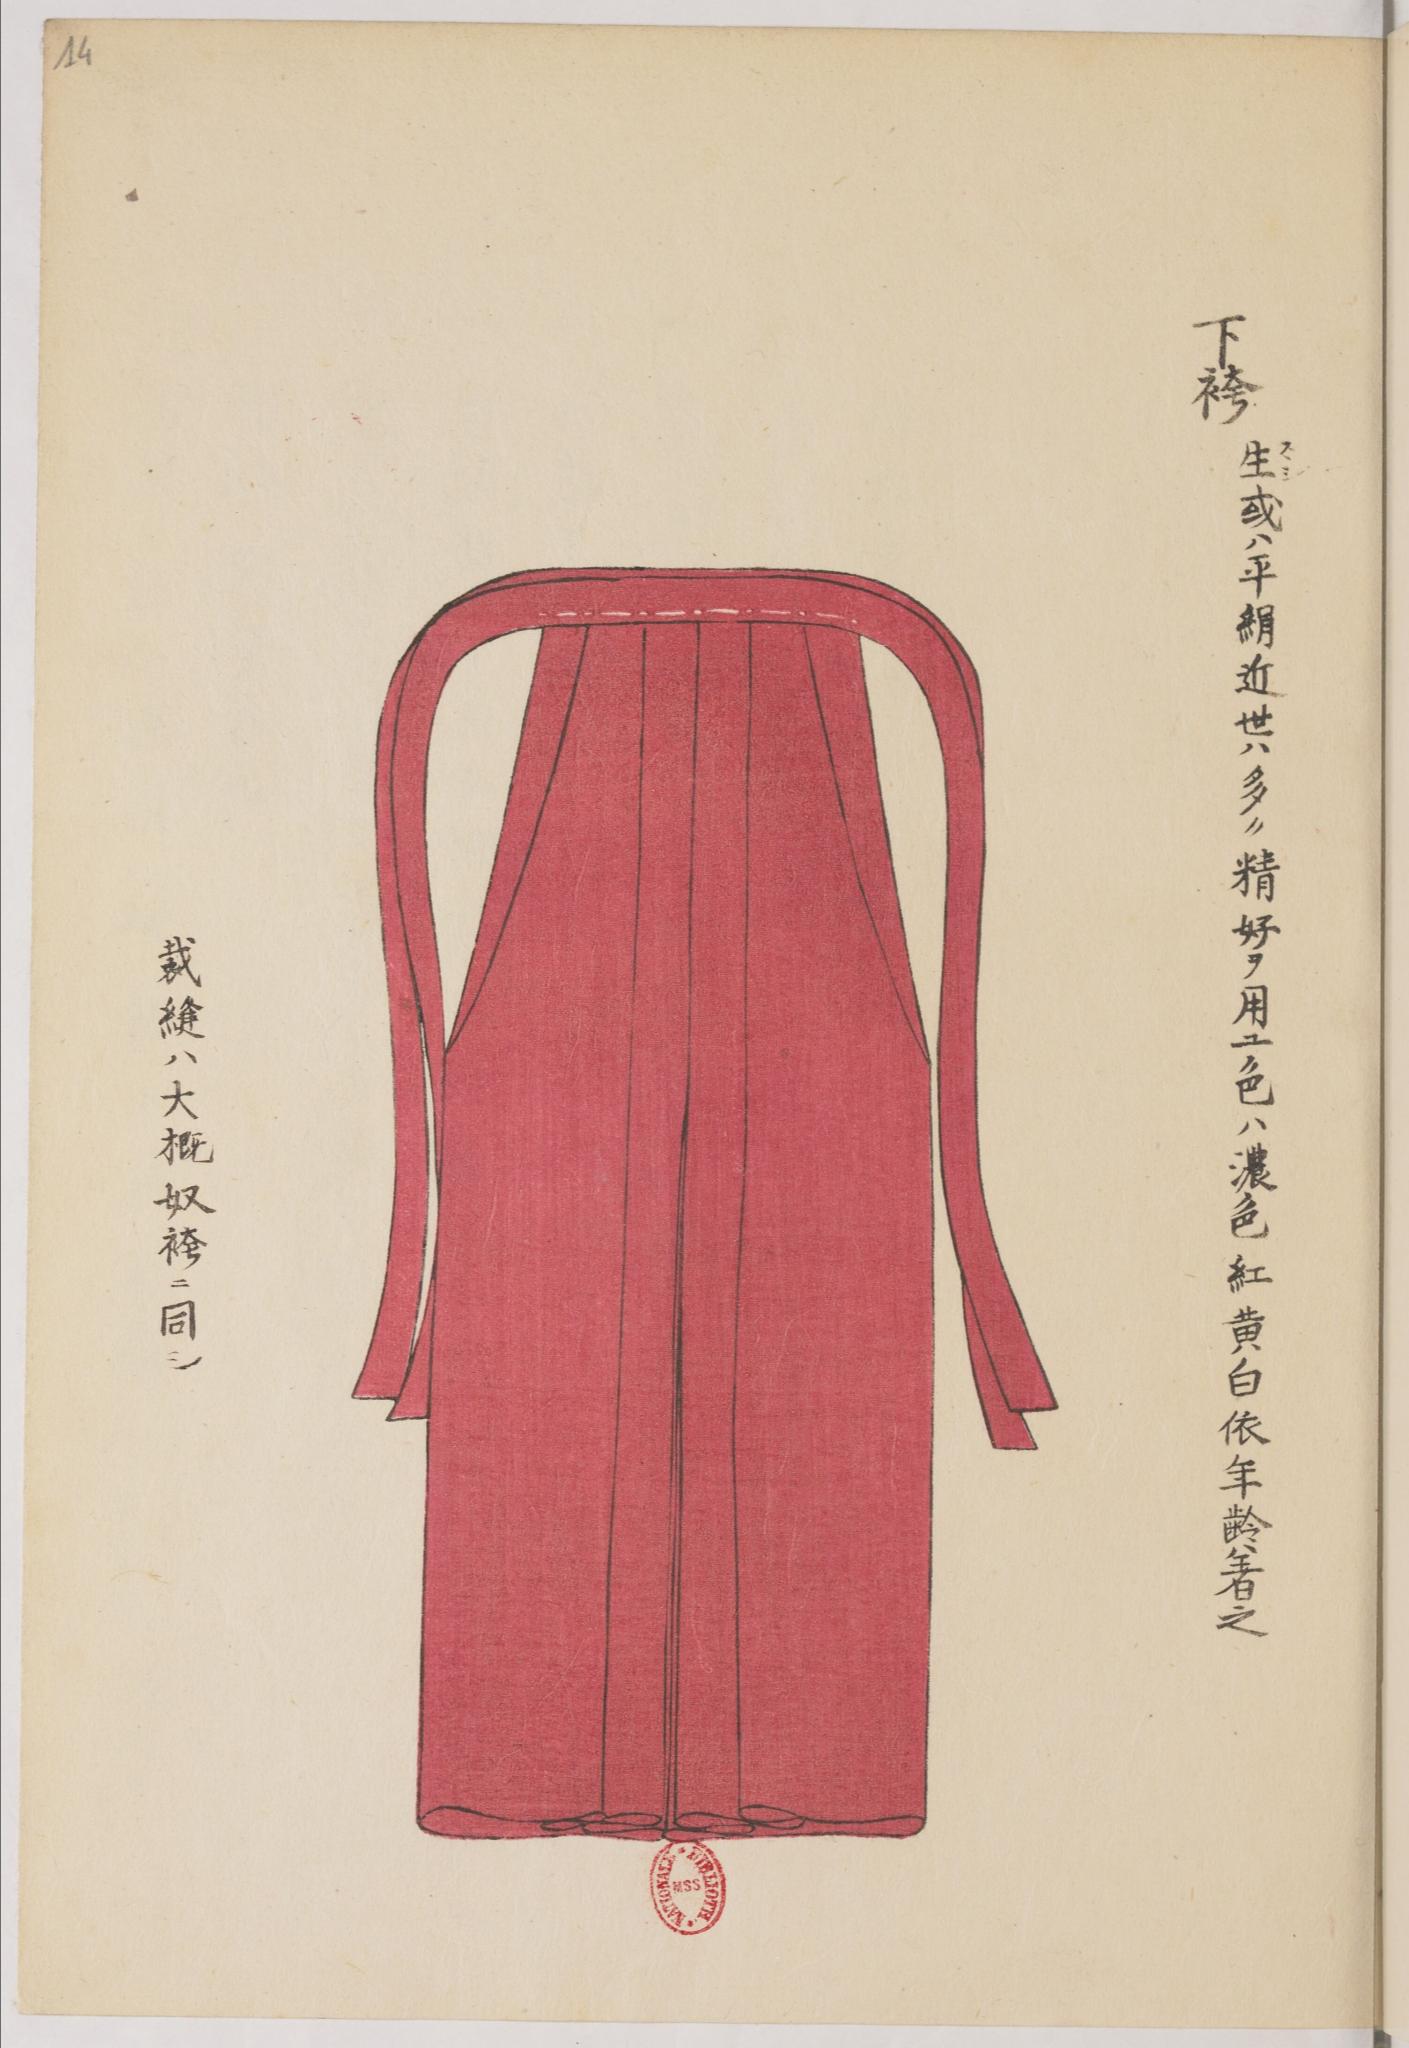 14
下袴
生スヽシ或ハ平絹近世ハ多〃精好ヲ用ユ色ハ濃色紅黄白依年齢著之
裁縫ハ大概奴袴ニ同シ
BIBLIOTH. NATIONALE
MSS